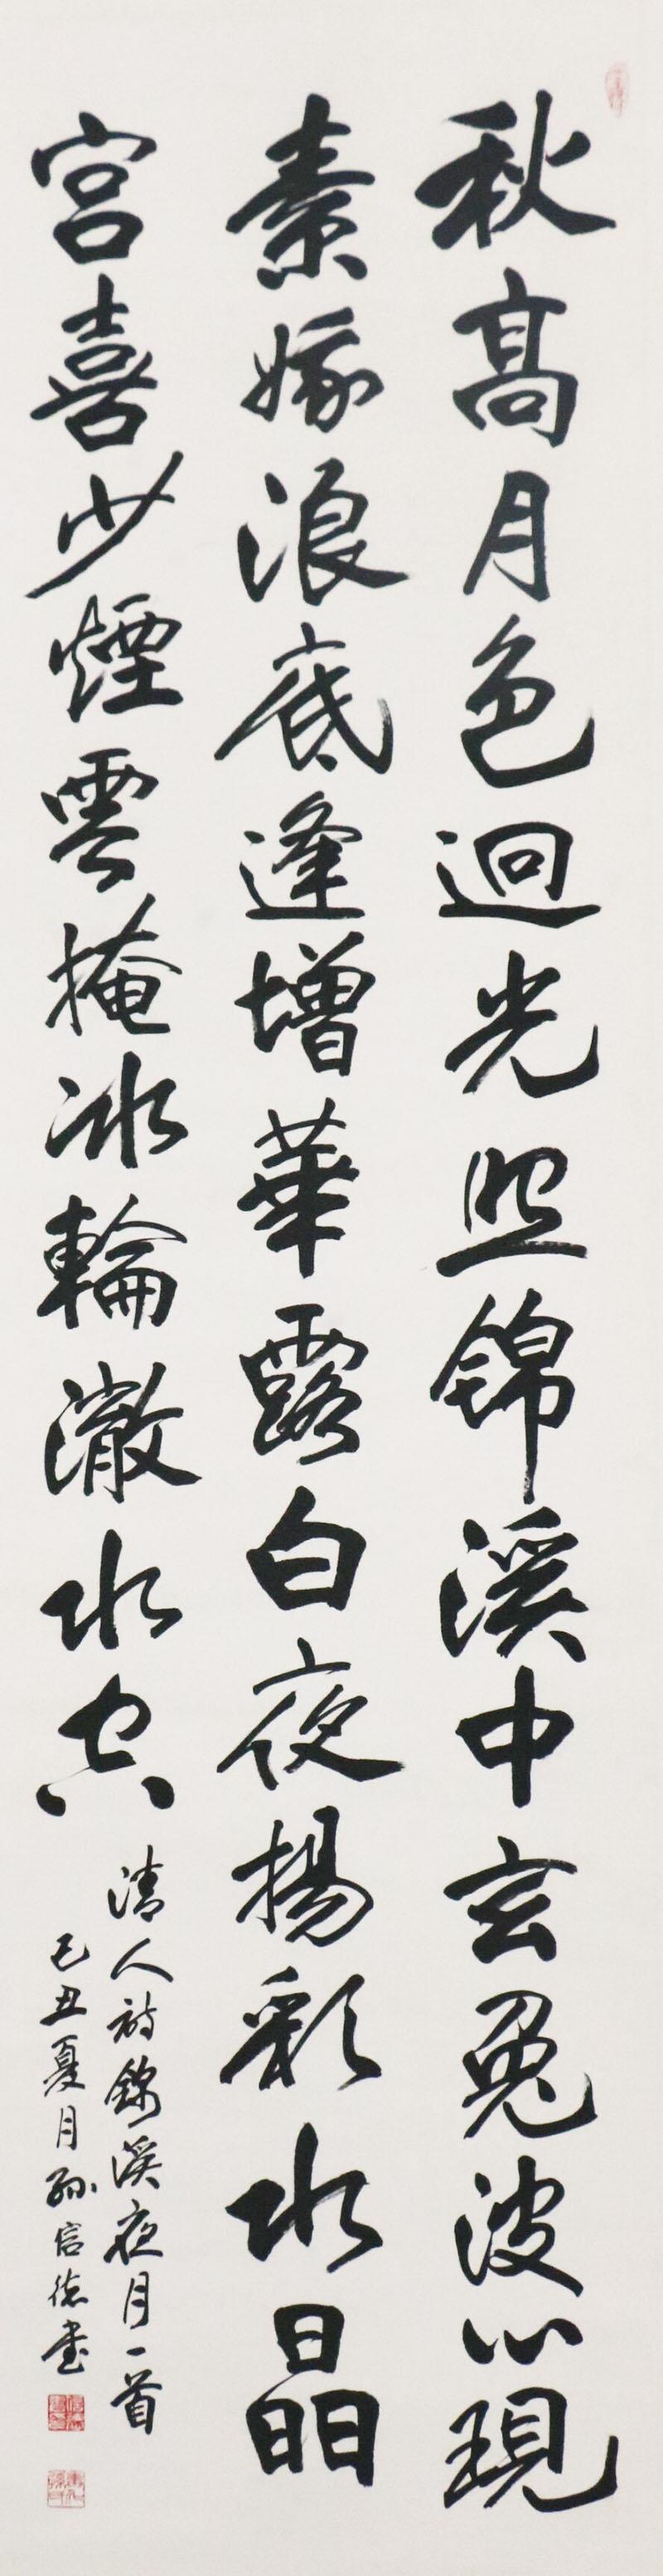 秋高月色迥光照锦溪中玄兔波心現
素娥浪底逢增華露白夜揚彩水晶
宮喜少煙雲掩冰輪澈水空
清人詩錦溪夜月一首
己丑夏月孫信德書